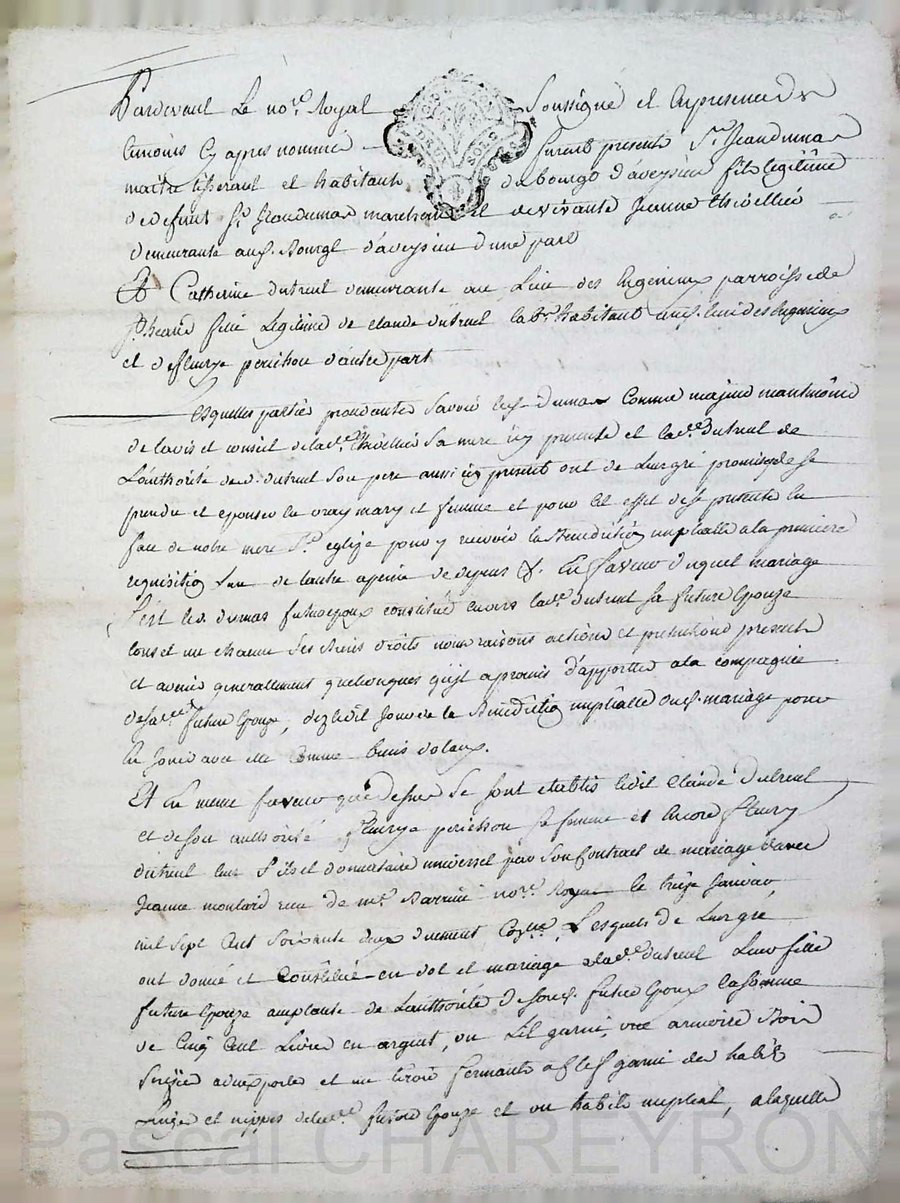 Pardevant Le no.re Royal Soussigné et En presence des
temoins Cy apres nommé furent presents S.r Jean dumas
maitre tisserant et habitant du bourgs d'aveysieu fils legitime
de defunt S.r Jean dumas marchand et de vivante Jeanne
demeurante aud. Bourgt d'aveysieu d'une part
Et Catherine dutreuil demeurante au Lieu des Ingenieux parroisse de
fille Legitime de Claude dutreuil lab.r habitant aud. lieu des Ingenieux
et de fleurye perichon d'autre part
Lesquelles parties procedantes Savoir led. dumas Comme majeur neantmoins
de lavis et conseil de lad.e sa mere icy presente et lad.e dutreuil de
L'authorité dud. dutreuil Son pere aussi icy present ont de Leur gré promis de se
prendre et epouser en vray mary et femme et pour cet effet de se presenter en
face de notre mere S.te eglise pour y recevoir la Benediction nuptialle a la premiere
requisition L'un de l'autre a peine de depens &. En faveur duquel mariage
s'est led. dumas futur epoux constitué envers lad.e dutreuil sa future Epouze
tous et un chacun ses biens droits noms raisons actions et pretentions presents
et avenir generallement quelconques qu'il a promis d'apporter a la compagnie
de sa.de future Epouze, dez led.it Jour de la Benediction nuptialle dud. mariage pour
en Jouir avec elle Comme biens dotaux.
Et En meme faveur que dessus se sont etablis led.it Claude dutreuil
et de son authorité fleurye perichon sa femme et Encore fleury
dutreuil leur fils et donnataire universel par son Contract de mariage d'avec
Jeanne moulard reçu de m.e Barrieu no.re Royal le treize Janvier
mil sept Cent soixante deux duement Lesquels de Leur gré
ont donné et Constitué en dot et mariage a lad.e dutreuil Leur fille
future Epouze acceptante de L'authorité de son d. futur Epoux la somme
de Cinq Cent Livres en argent, un Lit garni, une armoire Bois
Sapin a deux portes et un tiroir fermante a Clef garni des habits
Linges et nippes de lad.e future Epouze et un habit nuptial, a laquelle
Pascal CHAREYRON